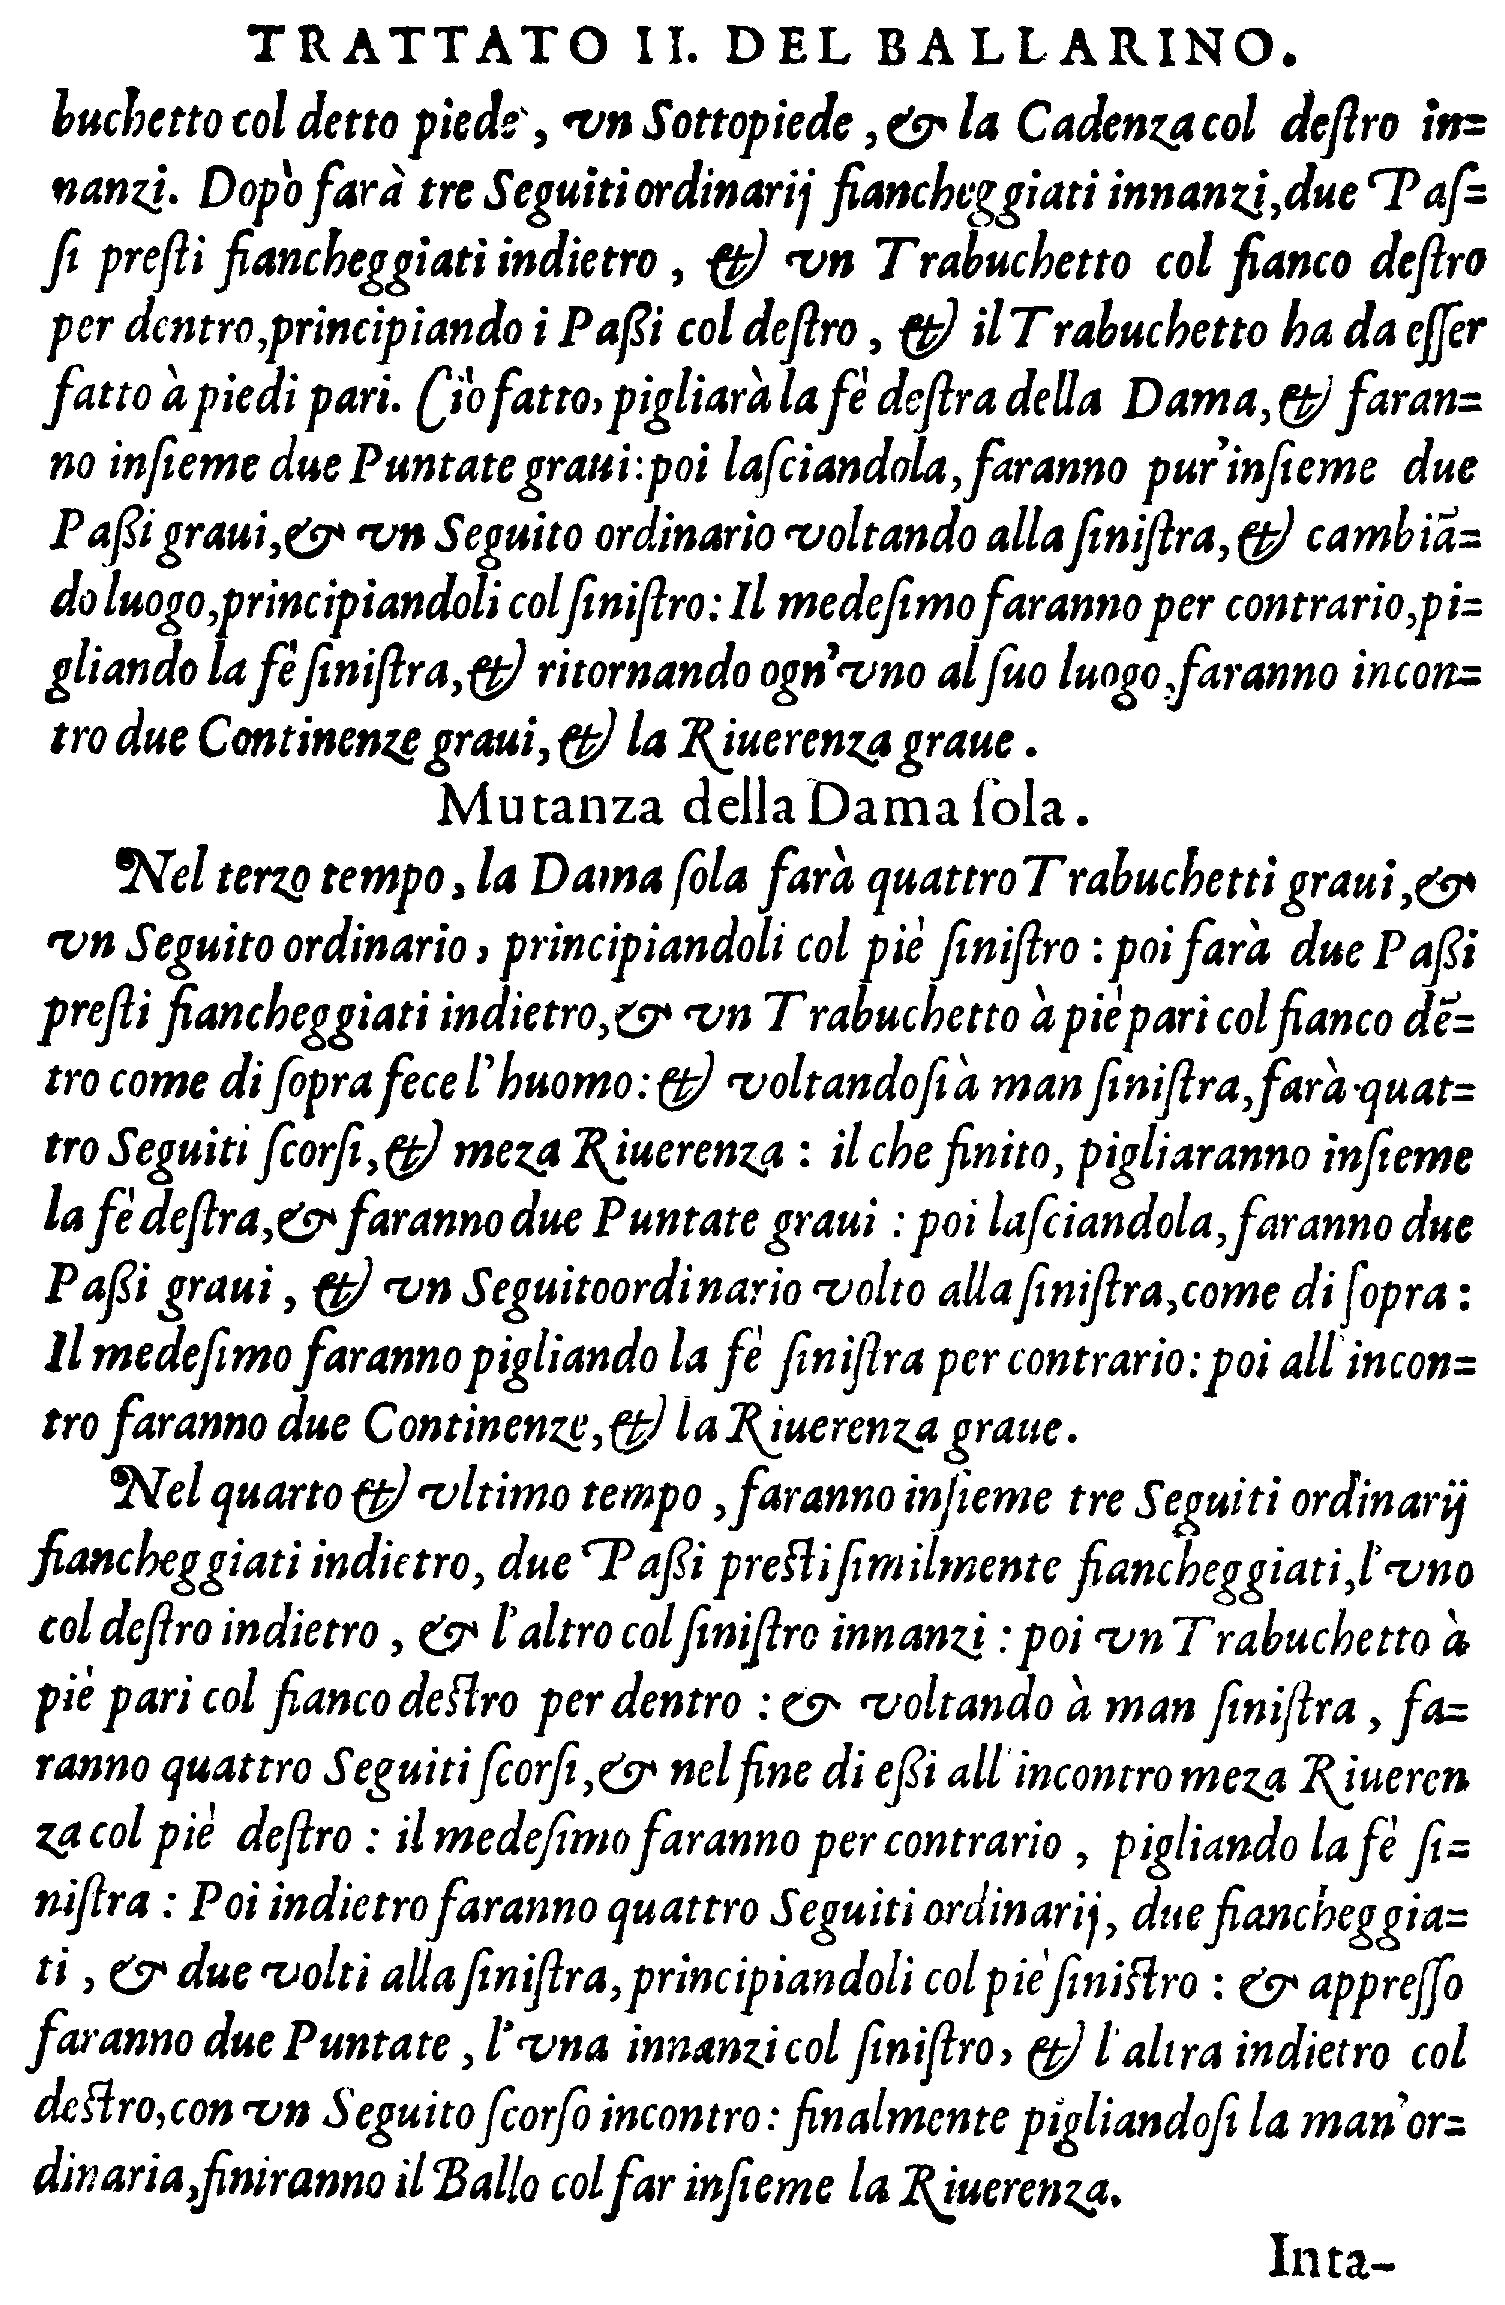 TRATTATO II. DEL BALLARINO.
buchetto col detto piede, vn Sottopiede, & la Cadenza col deſtro in=
nanzi. Dopò farà tre Seguiti ordinarij fiancheggiati innanzi, due Paſ=
ſi preſti fiancheggiati indietro, & vn Trabuchetto col fianco deſtro
per dentro, principiando i Paßi col deſtro, & il Trabuchetto ha da eſſer
fatto à piedi pari. Ciò fatto, pigliarà la fè deſtra della Dama, & faran=
no inſieme due Puntate graui: poi laſciandola, faranno pur'inſieme due
Paßi graui, & vn Seguito ordinario voltando alla ſiniſtra, & cambiā=
do luogo, principiandoli col ſiniſtro: Il medeſimo faranno per contrario, pi=
gliando la fè ſiniſtra, & ritornando ogn'vno al ſuo luogo, faranno incon=
tro due Continenze graui, & la Riuerenza graue.
Mutanza della Dama ſola.
Nel terzo tempo, la Dama ſola farà quattro Trabuchetti graui, &
vn Seguito ordinario, principiandoli col piè ſiniſtro: poi farà due Paßi
preſti fiancheggiati indietro, & vn Trabuchetto à piè pari col fianco dē=
tro come di ſopra fece l'huomo: & voltandoſi à man ſiniſtra, farà quat=
tro Seguiti ſcorſi, & meza Riuerenza: il che finito, pigliaranno inſieme
la fè deſtra, & faranno due Puntate graui: poi laſciandola, faranno due
Paßi graui, & vn Seguito ordinario volto alla ſiniſtra, come di ſopra:
Il medeſimo faranno pigliando la fè ſiniſtra per contrario: poi all'incon=
tro faranno due Continenze, & la Riuerenza graue.
Nel quarto & vltimo tempo, faranno inſieme tre Seguiti ordinarij
fiancheggiati indietro, due Paßi preſti ſimilmente fiancheggiati, l'vno
col deſtro indietro, & l'altro col ſiniſtro innanzi: poi vn Trabuchetto à
piè pari col fianco deſtro per dentro: & voltando à man ſiniſtra, fa=
ranno quattro Seguiti ſcorſi, & nel fine di eßi all'incontro meza Riueren
za col piè deſtro: il medeſimo faranno per contrario, pigliando la fè ſi=
niſtra: Poi indietro faranno quattro Seguiti ordinarij, due fiancheggia=
ti, & due volti alla ſiniſtra, principiandoli col piè ſiniſtro: & appreſſo
faranno due Puntate, l'vna innanzi col ſiniſtro, & l'altra indietro col
deſtro, con vn Seguito ſcorſo incontro: finalmente pigliandoſi la man'or=
dinaria, finiranno il Ballo col far inſieme la Riuerenza.
Inta-